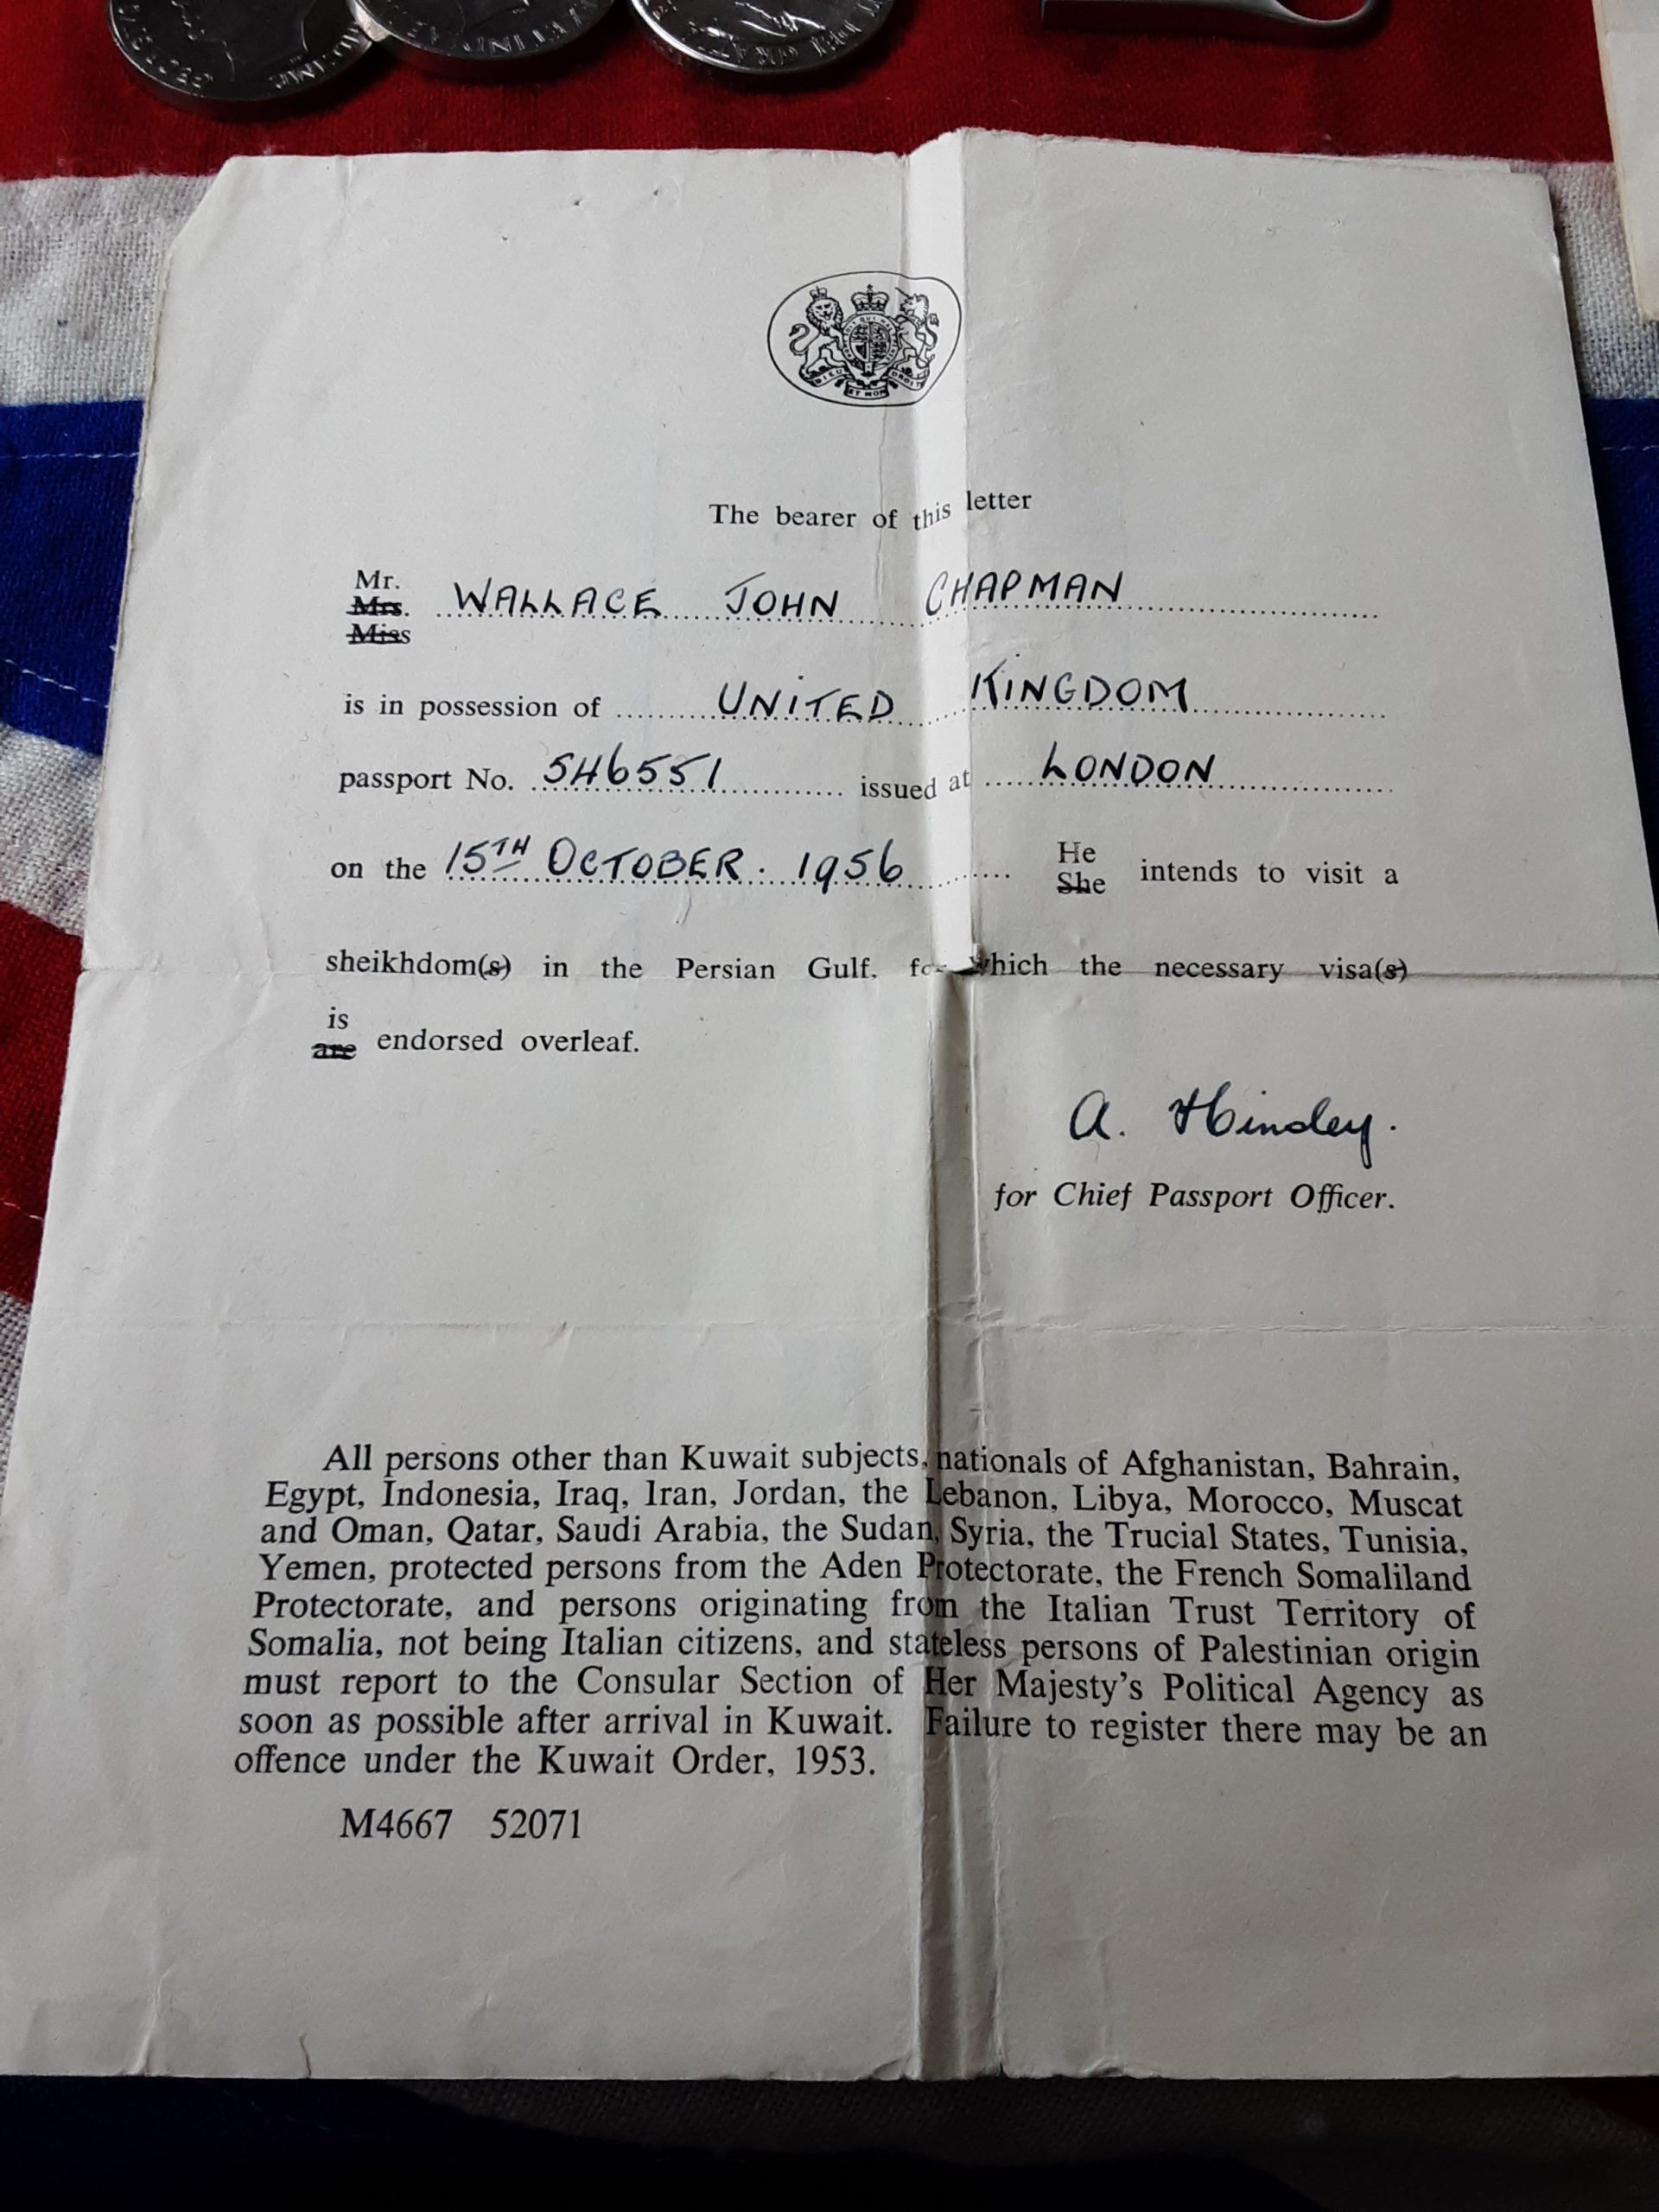 The bearer of this letter
Mr.
Mrs. WALLACE JOHN CHAPMAN
Miss
is in possession of UNITED KINGDOM
passport No. 546551 issued at LONDON
on the 15TH OCTOBER. 1956 He
She intends to visit a
sheikhdom(s) in the Persian Gulf, for which the necessary visa(s)
is
are endorsed overleaf.
A. Hindley.
for Chief Passport Officer.
All persons other than Kuwait subjects, nationals of Afghanistan, Bahrain,
Egypt, Indonesia, Iraq, Iran, Jordan, the Lebanon, Libya, Morocco, Muscat
and Oman, Qatar, Saudi Arabia, the Sudan, Syria, the Trucial States, Tunisia,
Yemen, protected persons from the Aden Protectorate, the French Somaliland
Protectorate, and persons originating from the Italian Trust Territory of
Somalia, not being Italian citizens, and stateless persons of Palestinian origin
must report to the Consular Section of Her Majesty's Political Agency as
soon as possible after arrival in Kuwait. Failure to register there may be an
offence under the Kuwait Order, 1953.
M4667 52071